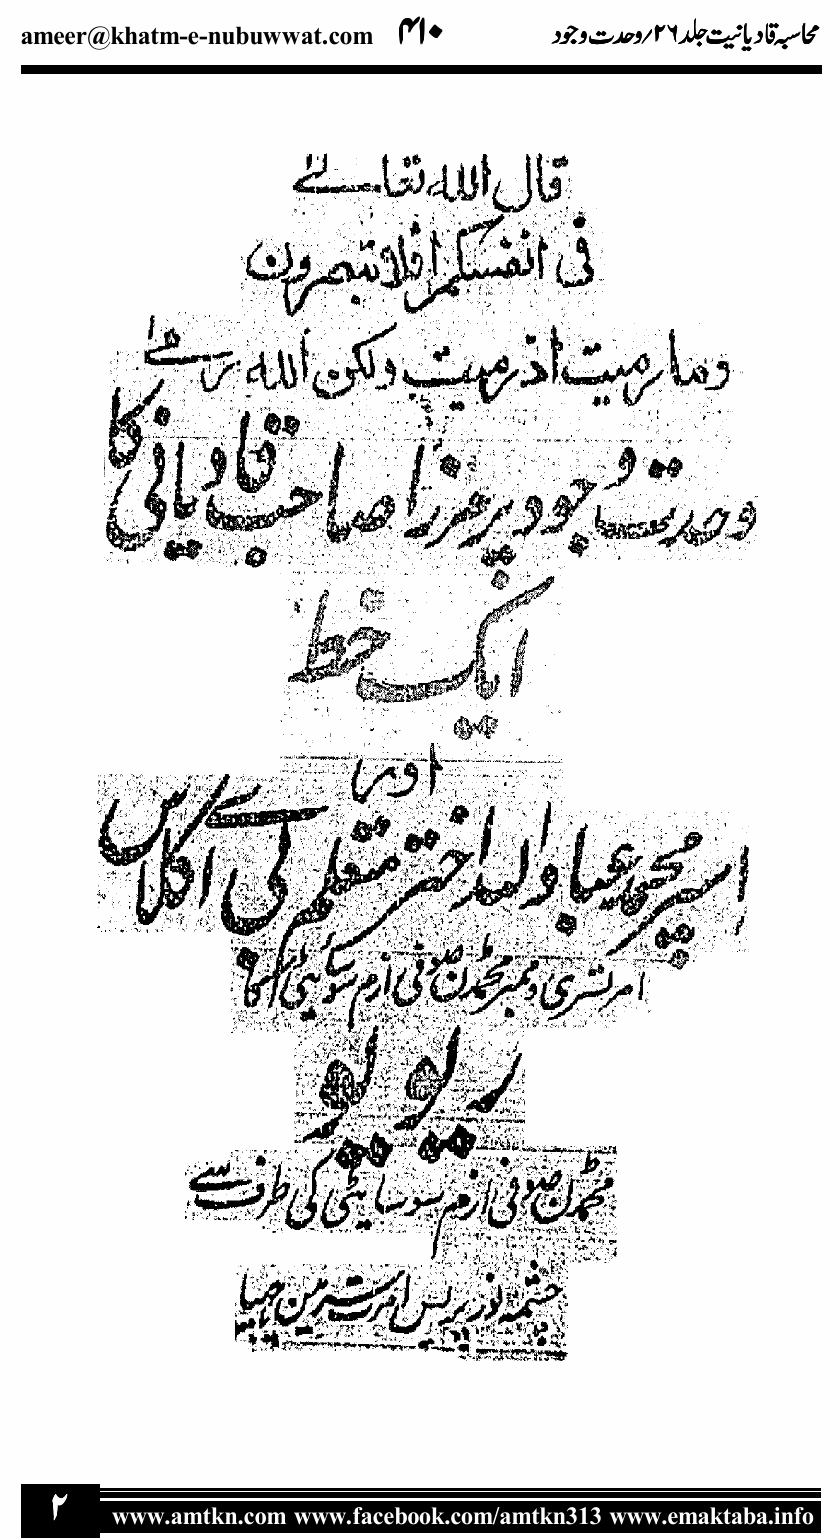 محاسبہ قادیانیت جلد ۲۶/وحدت وجود ۴۱۰ ameer@khatm-e-nubuwwat.com
قال اللہ تعالےٰ
فی انفسکم افلا تبصرون
وما رمیت اذ رمیت ولکن اللہ رمےٰ
وحدت وجود پر مرزا صاحب قادیانی کا
ایک خط
اور
اسیر محمد عبد الواحد اختر متعلم بی اے کلاس
امرتسری و ممبر محمڈن صوفی ازم سوسائٹی کا
ریویو
محمڈن صوفی ازم سوسائٹی کی طرف سے
چشمہ نور پریس امرتسر مین چھپا
۲
www.amtkn.com www.facebook.com/amtkn313 www.emaktaba.info